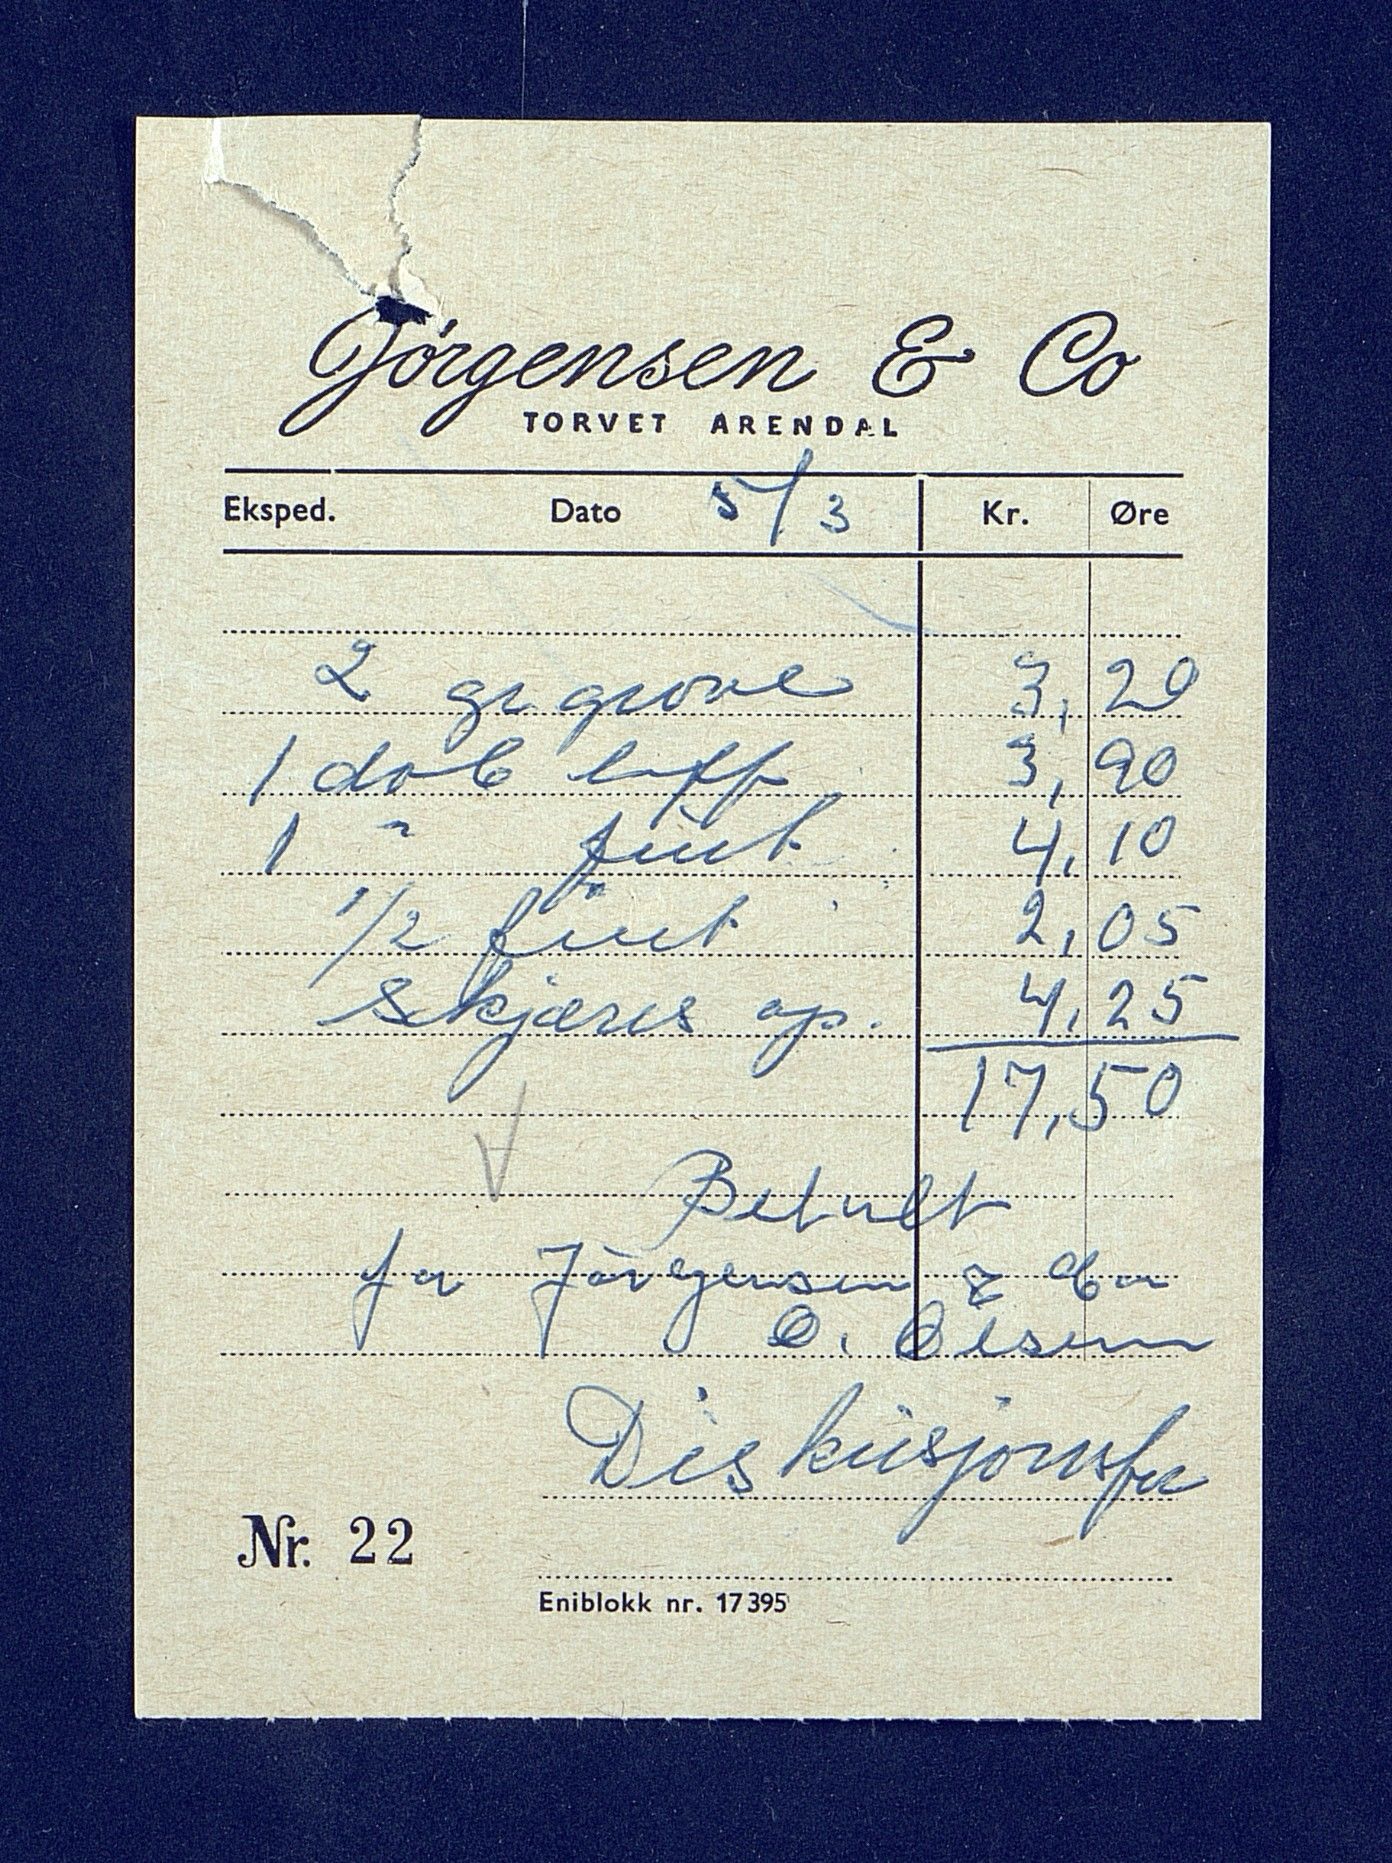 Jørgensen & Co
TORVET ARENDAL
Eksped. Dato 5/3 Kr. Øre
2 gr grove 3,20
1 dob loff 3,90
1 " fint 4,10
1/2 fint 2,05
skjæres op. 4,25
17,50
Betalt
for Jørgensen & Co
O. Olsen
Diskusjonsfor
Nr. 22
Eniblokk nr. 17395